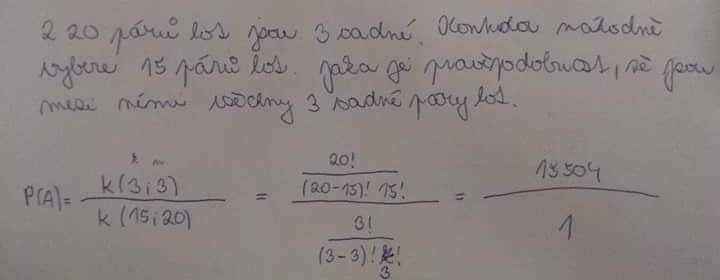 Z 20 párů bot jsou 3 vadné. Kontrola náhodně
vybere 15 párů bot. jaká je pravděpodobnost, že jsou
mezi nimi všechny 3 vadné páry bot.
k n
P(A)= k(3;3) / k(15;20) = 20! / (20-15)! 15! / 3! / (3-3)! 3! = 15504 / 1